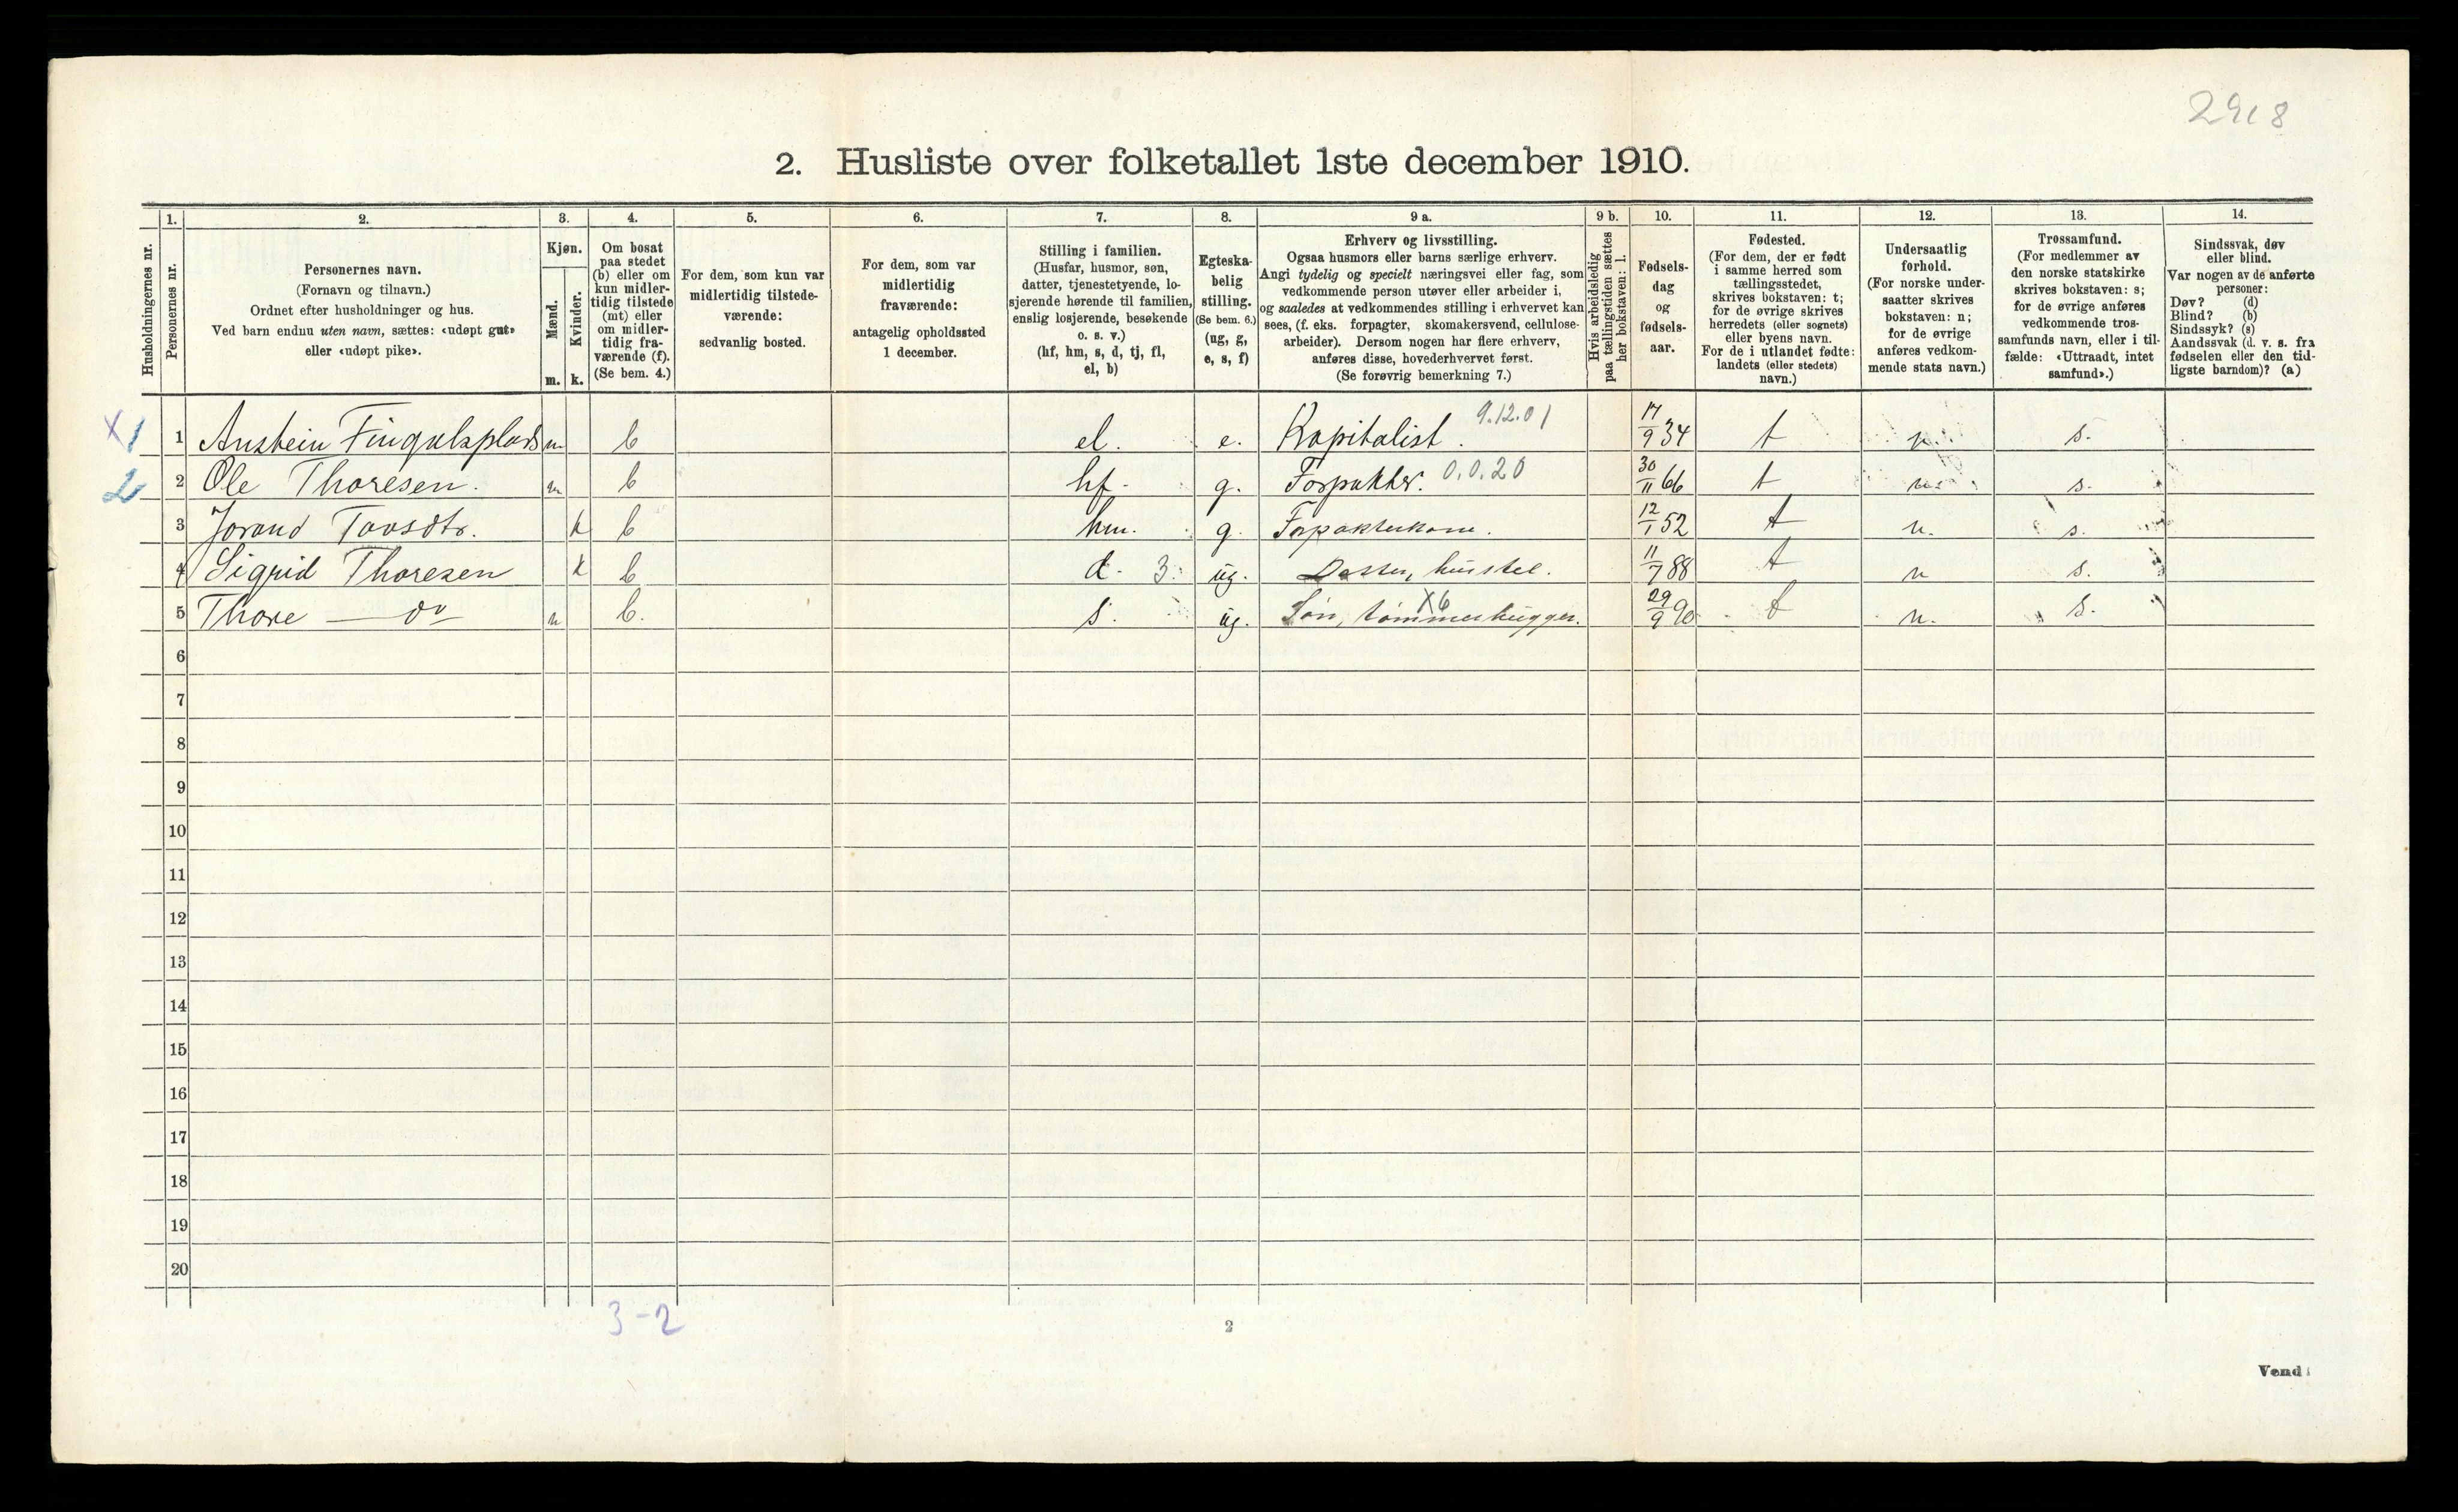 2918
2. Husliste over folketallet 1ste december 1910.
1. 2. 3. 4. 5. 6. 7. 8. 9 a. 9 b. 10. 11. 12. 13. 14.
Husholdningernes nr.
Personernes nr.
Personernes navn.
(Fornavn og tilnavn.)
Ordnet efter husholdninger og hus.
Ved barn endnu uten navn, sættes: «udøpt gut»
eller «udøpt pike».
Kjøn.
Mænd.
Kvinder.
m. k.
Om bosat
paa stedet
(b) eller om
kun midler-
tidig tilstede
(mt) eller
om midler-
tidig fra-
værende (f).
(Se bem. 4.)
For dem, som kun var
midlertidig tilstede-
værende:
sedvanlig bosted.
For dem, som var
midlertidig
fraværende:
antagelig opholdssted
1 december.
Stilling i familien.
(Husfar, husmor, søn,
datter, tjenestetyende, lo-
sjerende hørende til familien,
enslig losjerende, besøkende
o. s. v.)
(hf, hm, s, d, tj, fl,
el, b)
Egteska-
belig
stilling.
(Se bem. 6.)
(ug, g,
e, s, f)
Erhverv og livsstilling.
Ogsaa husmors eller barns særlige erhverv.
Angi tydelig og specielt næringsvei eller fag, som
vedkommende person utøver eller arbeider i,
og saaledes at vedkommendes stilling i erhvervet kan
sees, (f. eks. forpagter, skomakersvend, cellulose-
arbeider). Dersom nogen har flere erhverv,
anføres disse, hovederhvervet først.
(Se forøvrig bemerkning 7.)
Hvis arbeidsledig
paa tællingstiden sættes
her bokstaven: l.
Fødsels-
dag
og
fødsels-
aar.
Fødested.
(For dem, der er født
i samme herred som
tællingsstedet,
skrives bokstaven: t;
for de øvrige skrives
herredets (eller sognets)
eller byens navn.
For de i utlandet fødte:
landets (eller stedets)
navn.)
Undersaatlig
forhold.
(For norske under-
saatter skrives
bokstaven: n;
for de øvrige
anføres vedkom-
mende stats navn.)
Trossamfund.
(For medlemmer av
den norske statskirke
skrives bokstaven: s;
for de øvrige anføres
vedkommende tros-
samfunds navn, eller i til-
fælde: «Uttraadt, intet
samfund».)
Sindssvak, døv
eller blind.
Var nogen av de anførte
personer:
Døv? (d)
Blind? (b)
Sindssyk? (s)
Aandssvak (d. v. s. fra
fødselen eller den tid-
ligste barndom)? (a)
X 1 1 Anstein Fingalsplads m b el. e. Kapitalist. 9.12.01 17/9 34 t n. s.
2 2 Ole Thoresen. m b hf. g. Forpakter. 0.0.20 30/11 66 t n. s.
3 Jorand Tovsdtr. k b hm. g. Forpakterkone. 12/1 52 t n. s.
4 Sigrid Thoresen k b d. 3. ug. Datter, husstel. 11/7 88 t n s.
5 Thore — do m b. s. ug. Søn, tømmerhugger. X6 29/9 90 t n. s.
6
7
8
9
10
11
12
13
14
15
16
17
18
19
20
3-2
2
Vend